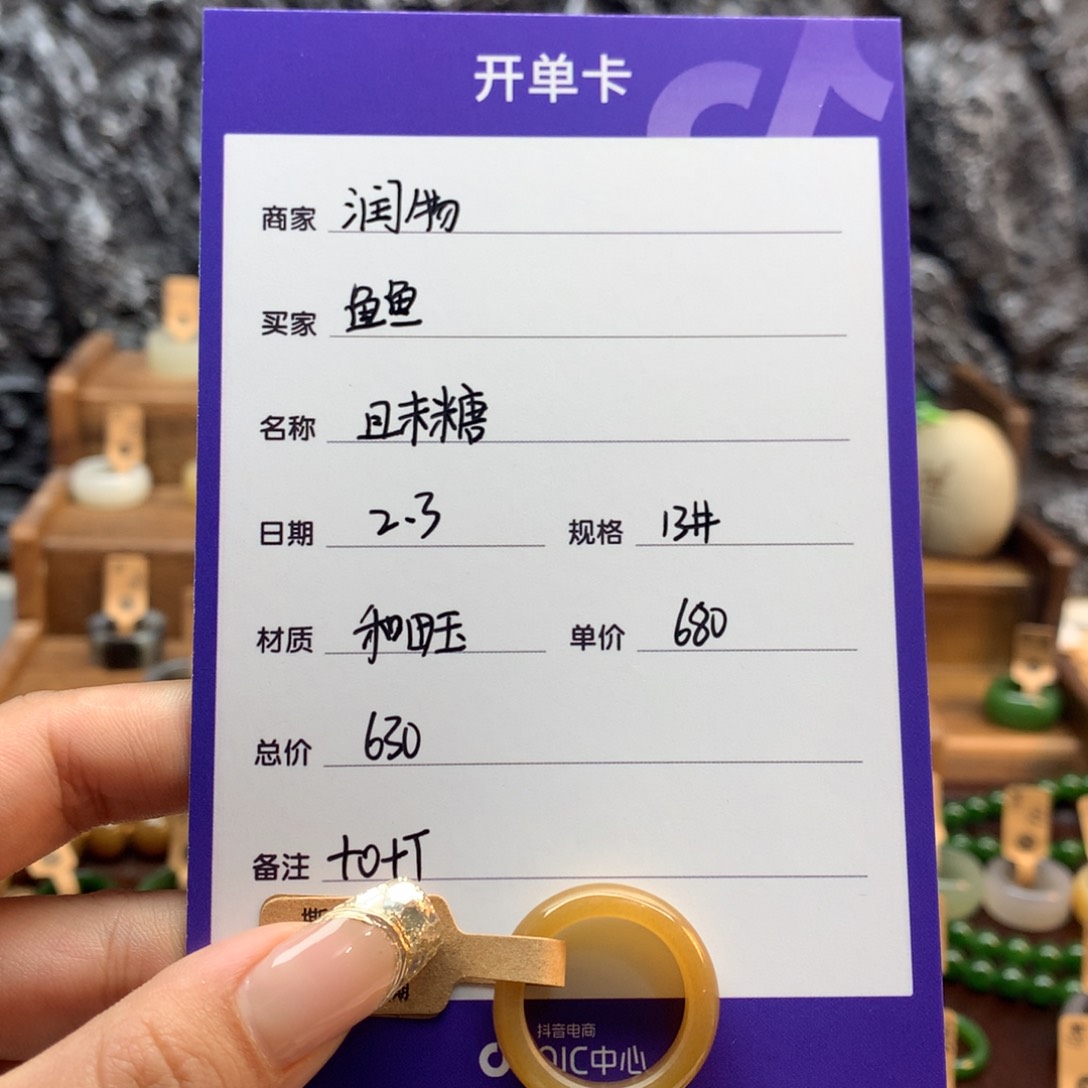 开单卡
商家 润物
买家 鱼鱼
名称 且末糖
日期 2.3 规格 13#
材质 和田玉 单价 680
总价 630
备注 to+T
抖音电商
QIC中心